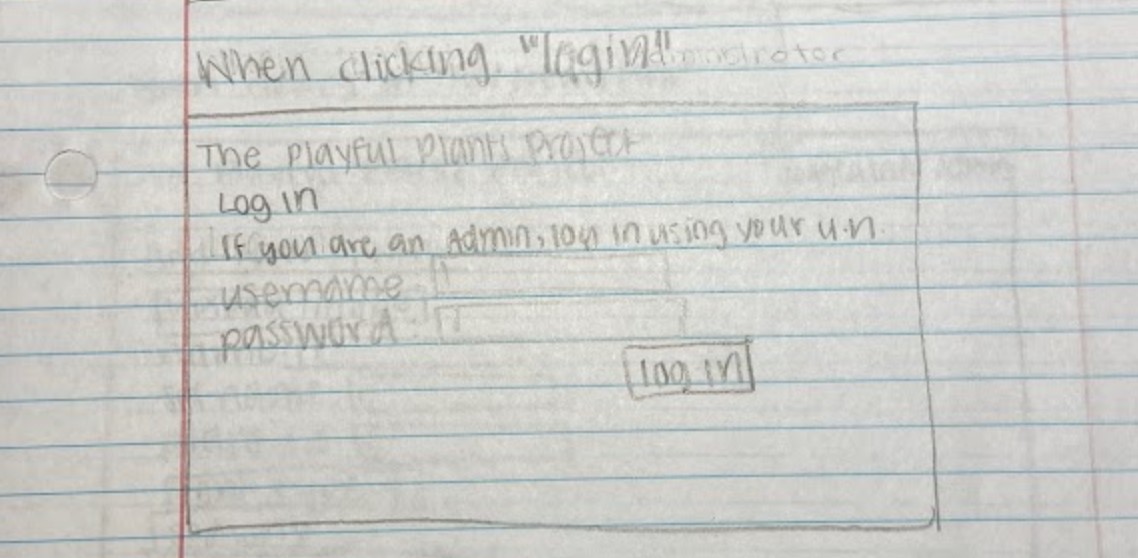 When clicking "login"
The Playful Plants Project
Log in
If you are an Admin, log in using your u.n.
username
password
log in